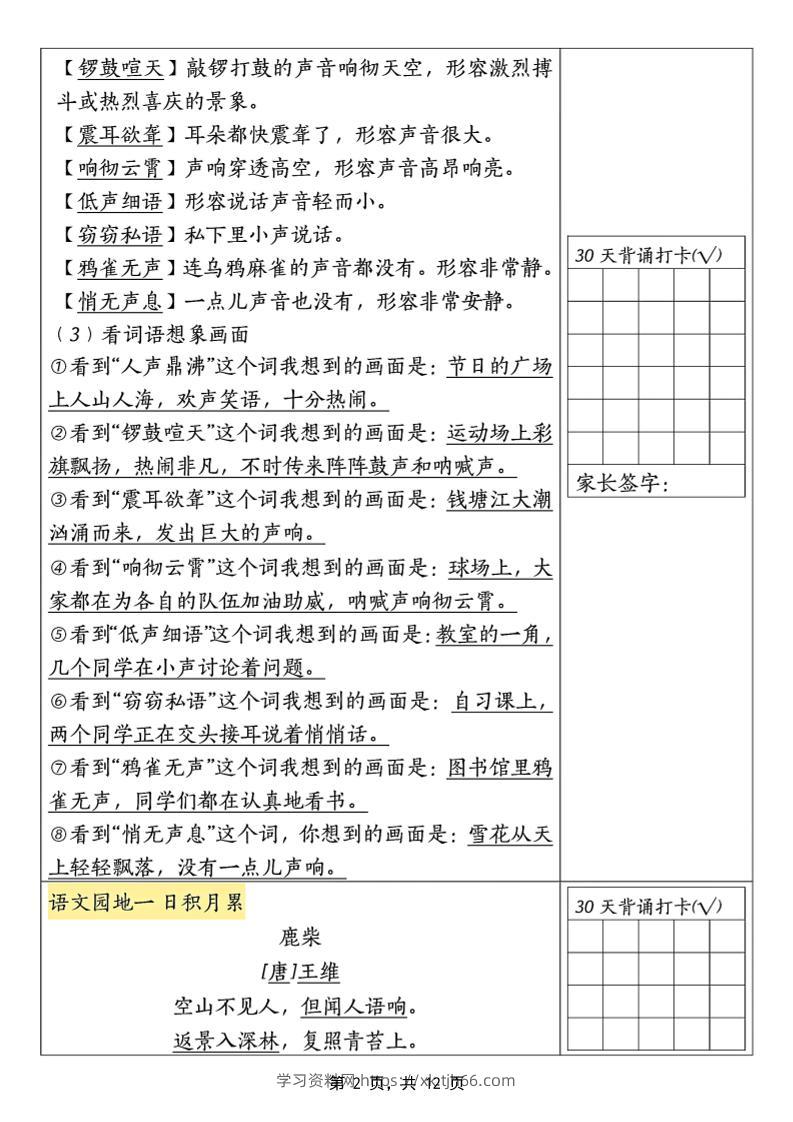 【锣鼓喧天】敲锣打鼓的声音响彻天空，形容激烈搏
斗或热烈喜庆的景象。
【震耳欲聋】耳朵都快震聋了，形容声音很大。
【响彻云霄】声响穿透高空，形容声音高昂响亮。
【低声细语】形容说话声音轻而小。
【窃窃私语】私下里小声说话。
【鸦雀无声】连乌鸦麻雀的声音都没有。形容非常静。
【悄无声息】一点儿声音也没有，形容非常安静。
（3）看词语想象画面
①看到“人声鼎沸”这个词我想到的画面是：节日的广场
上人山人海，欢声笑语，十分热闹。
②看到“锣鼓喧天”这个词我想到的画面是：运动场上彩
旗飘扬，热闹非凡，不时传来阵阵鼓声和呐喊声。
③看到“震耳欲聋”这个词我想到的画面是：钱塘江大潮
汹涌而来，发出巨大的声响。
④看到“响彻云霄”这个词我想到的画面是：球场上，大
家都在为各自的队伍加油助威，呐喊声响彻云霄。
⑤看到“低声细语”这个词我想到的画面是：教室的一角，
几个同学在小声讨论着问题。
⑥看到“窃窃私语”这个词我想到的画面是：自习课上，
两个同学正在交头接耳说着悄悄话。
⑦看到“鸦雀无声”这个词我想到的画面是：图书馆里鸦
雀无声，同学们都在认真地看书。
⑧看到“悄无声息”这个词，你想到的画面是：雪花从天
上轻轻飘落，没有一点儿声响。
30 天背诵打卡(√)
家长签字：
语文园地一 日积月累
鹿柴
[唐]王维
空山不见人，但闻人语响。
返景入深林，复照青苔上。
30 天背诵打卡(√)
第 2 页，共 12 页
学习资料网